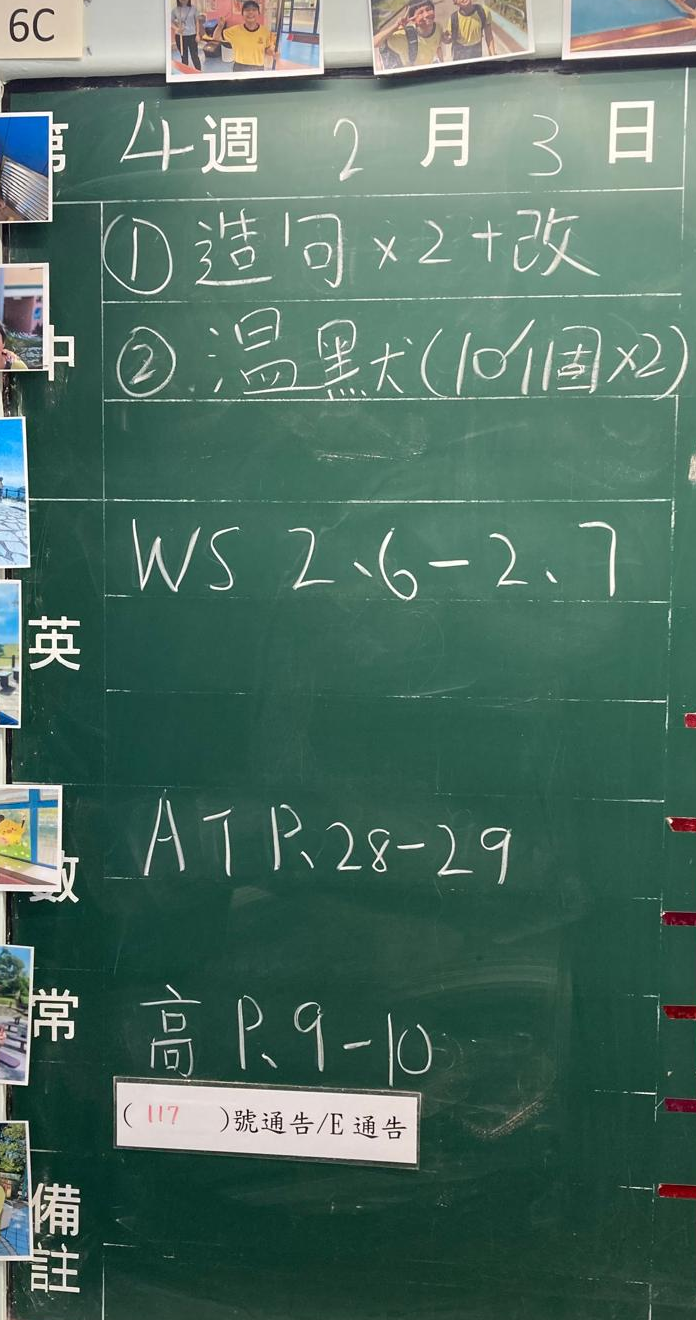 6C
第 4 週 2 月 3 日
中
① 造句 x2 + 改
② 温默 (10/11 個 x2)
英
WS 2、6 - 2、7
數
A T P、28-29
常
高 P、9-10
( 117 )號通告/E 通告
備註